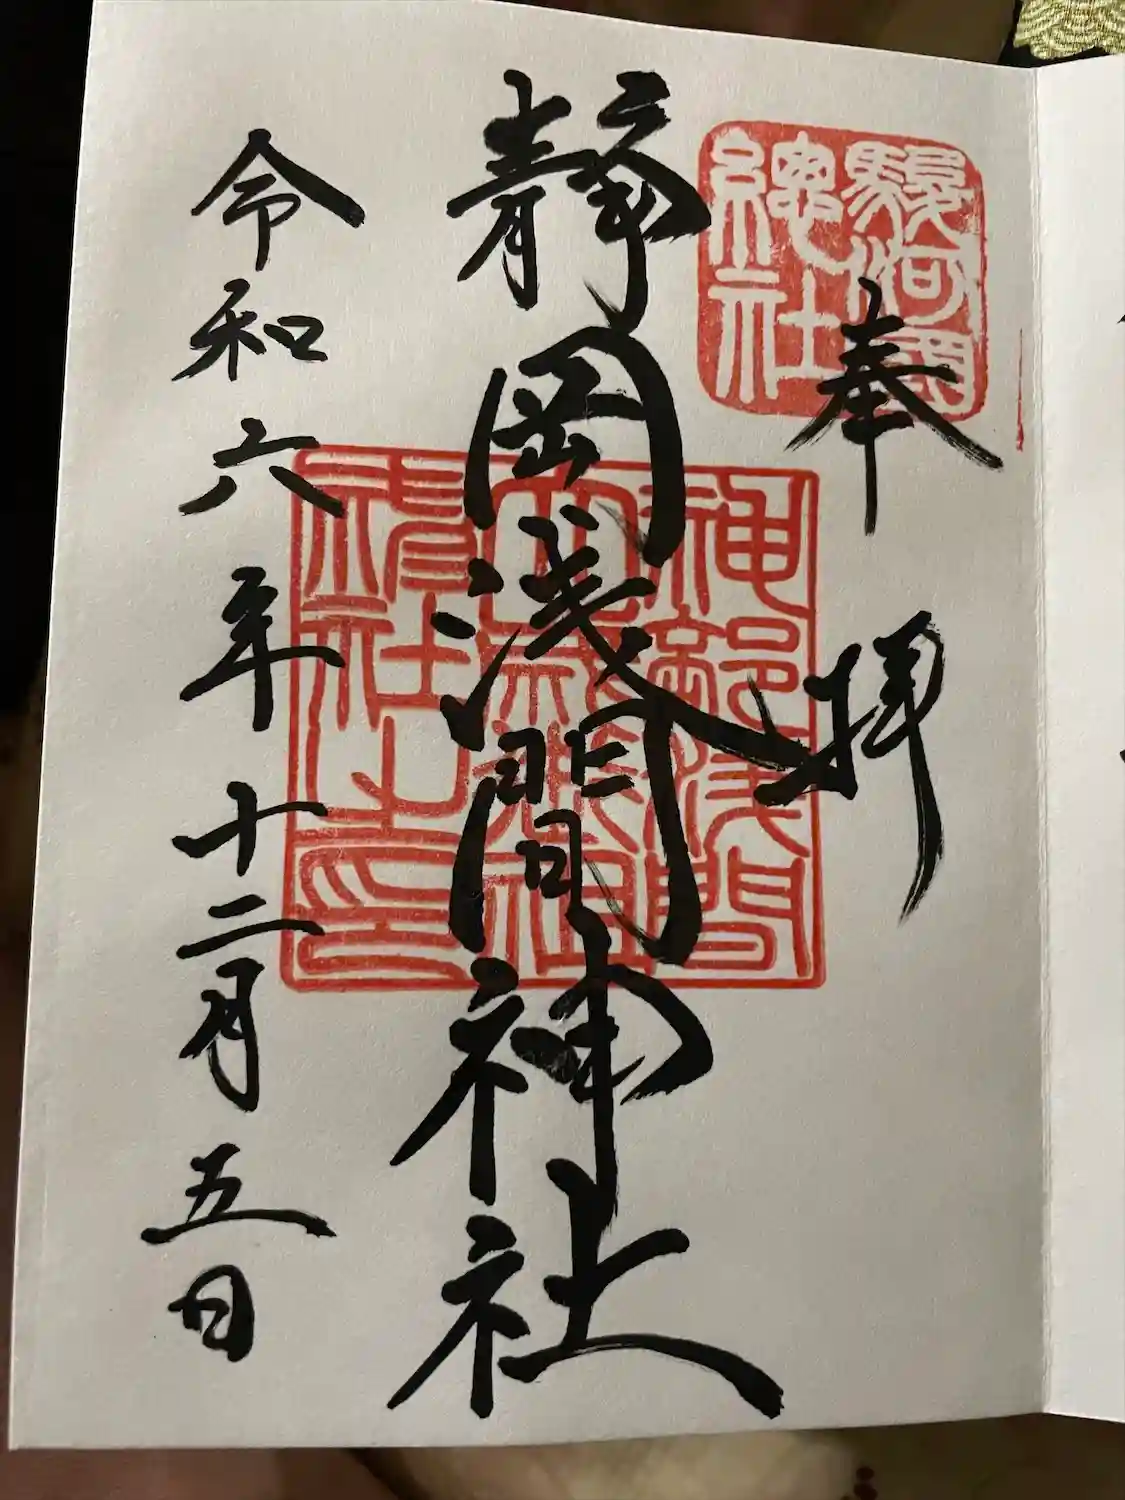 奉拝
駿河國
總社
静岡浅間神社
神部浅間
大歳御祖
神社之印
令和六年十二月五日